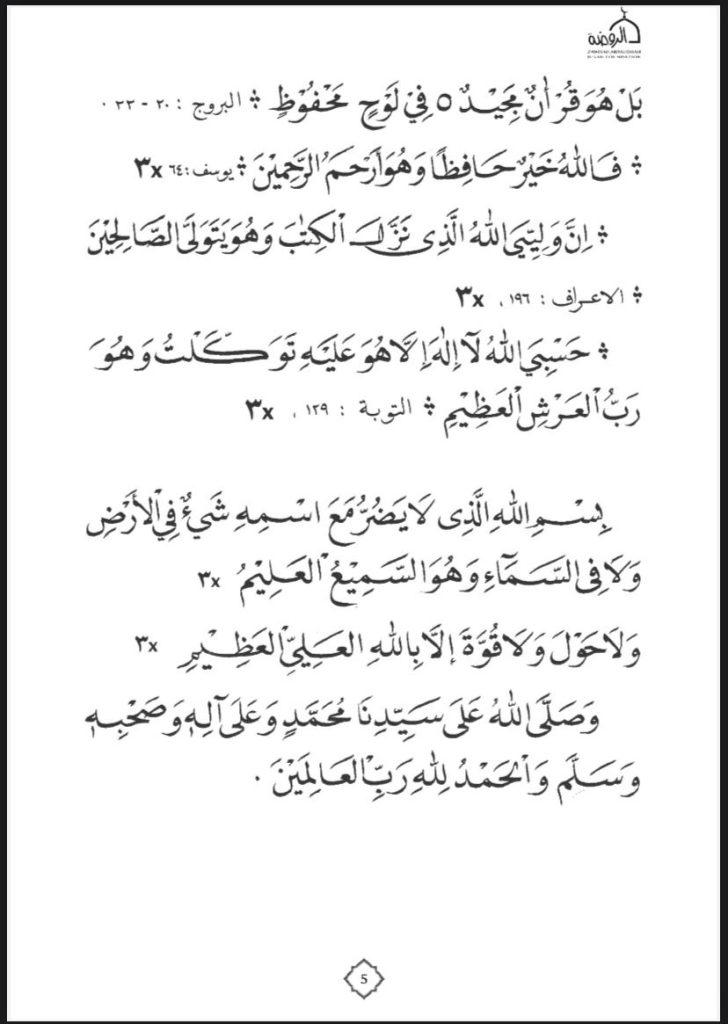 الروضة
بَلْ هُوَ قُرْاٰنٌ مَّجِيْدٌ ٥ فِيْ لَوْحٍ مَحْفُوْظٍ ❖ البروج : ٢٠ - ٢٢ .
❖ فَاللّٰهُ خَيْرٌ حَافِظًا وَهُوَ اَرْحَمُ الرَّحِمِيْنَ ❖ يوسف : ٦٤ ٣x
❖ اِنَّ وَلِيِّيَ اللّٰهُ الَّذِى نَزَّلَ الْكِتٰبَ وَهُوَ يَتَوَلَّى الصَّالِحِيْنَ
❖ الاعراف : ١٩٦ . ٣x
❖ حَسْبِيَ اللّٰهُ لَآ إِلٰهَ إِلَّا هُوَ عَلَيْهِ تَوَكَّلْتُ وَهُوَ
رَبُّ الْعَرْشِ الْعَظِيْمِ ❖ التوبة : ١٢٩ . ٣x
بِسْمِ اللّٰهِ الَّذِى لَا يَضُرُّ مَعَ اسْمِهِ شَيْءٌ فِي الْأَرْضِ
وَلَا فِى السَّمَآءِ وَهُوَ السَّمِيْعُ الْعَلِيْمُ ٣x
وَلَا حَوْلَ وَلَا قُوَّةَ إِلَّا بِاللّٰهِ الْعَلِيِّ الْعَظِيْمِ ٣x
وَصَلَّى اللّٰهُ عَلَى سَيِّدِنَا مُحَمَّدٍ وَعَلَى آلِهٖ وَصَحْبِهٖ
وَسَلَّم وَالْحَمْدُ لِلّٰهِ رَبِّ الْعَالَمِيْنَ .
5